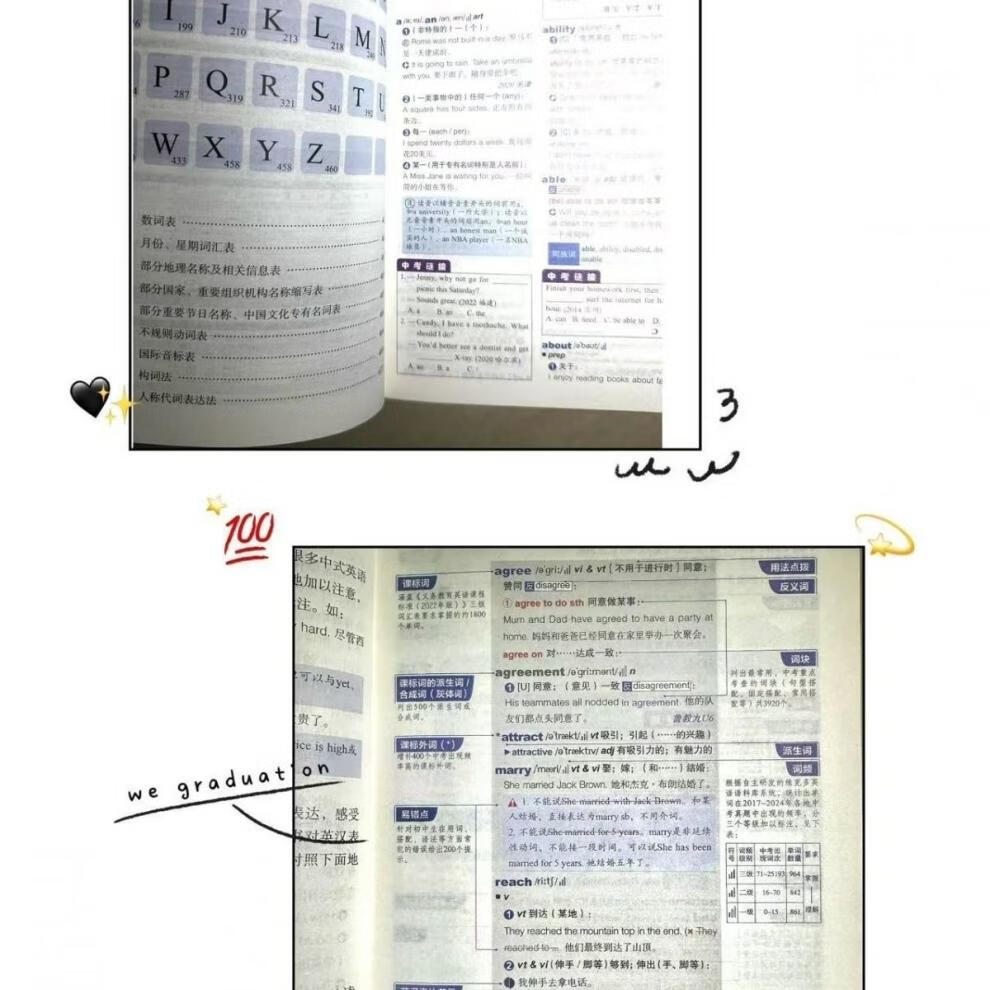 I 199 J 210 K 213 L 218 M N
P 287 Q 319 R 321 S 341 T U
W 433 X 458 Y 458 Z 460
数词表
月份、星期词汇表
部分地理名称及相关信息表
部分国家、重要组织机构名称缩写表
部分重要节日名称、中国文化专有名词表
不规则动词表
国际音标表
构词法
人称代词表达法
art
❶（非特指的）一（个）：
Rome was not built in a day. 罗马不
是一天建成的。
It is going to rain. Take an umbrella
with you. 要下雨了，随身带把伞吧。
❷（一类事物中的）任何一个 (any)：
A square has four sides. 正方形有四
条边。
❸ 每一 (each / per)：
I spend twenty dollars a week. 我每周
花20美元。
❹ 某一（用于专有名词特别是人名前）：
A Miss Jane is waiting for you. 一位叫
简的小姐在等你。
中考链接
1. — Jenny, why not go for ______
picnic this Saturday?
— Sounds great. (2022 福建)
A. a B. an C. the
2. — Candy, I have a toothache. What
should I do?
— You'd better see a dentist and get
______ X-ray. (2020 哈尔滨)
ability
able
同族词
able, ability, disabled,
unable
中考链接
Finish your homework first, then
______ surf the internet for
A. can B. need C. be able to D.
about /əˈbaʊt/
■ prep
❶ 关于：
I enjoy reading books about
3
100
很多中式英语
也加以注意，
注。如：
hard. 尽管西
可以与yet、
责了。
ice is high或
we graduation
表达，感受
对英汉表
对照下面地
课标词
涵盖《义务教育英语课程
标准（2022年版）》三级
词汇表要求掌握的约1800
个单词。
课标词的派生词/
合成词（灰体词）
列出500个派生词或
合成词。
课标外词（*）
增补400个中考出现频
率高的课标外词。
易错点
针对初中生在用词、
搭配、语法等方面常
犯的错误给出200个提
示。
agree /əˈɡriː/ vi & vt [不用于进行时] 同意；
赞同 反 disagree：
① agree to do sth 同意做某事：
Mum and Dad have agreed to have a party at
home. 妈妈和爸爸已经同意在家里举办一次聚会。
agree on 对……达成一致：
agreement /əˈɡriːmənt/ n
❶ [U] 同意；（意见）一致 反 disagreement：
His teammates all nodded in agreement. 他的队
友们都点头同意了。
*attract /əˈtrækt/ vt 吸引；引起（……的兴趣）
▶ attractive /əˈtræktɪv/ adj 有吸引力的；有魅力的
marry /ˈmæri/ vt & vi 娶；嫁；（和……）结婚：
She married Jack Brown. 她和杰克·布朗结婚了。
1. 不能说She married with Jack Brown。和某
人结婚，直接表为marry sb，不用介词。
2. 不能说She married for 5 years。marry是非延续
性动词，不能接一段时间。可以说She has been
married for 5 years. 她结婚五年了。
reach /riːtʃ/
■ v
❶ vt 到达（某地）：
They reached the mountain top in the end. (× They
reached to …) 他们最终到达了山顶。
❷ vt & vi (伸手/脚等) 够到；伸出(手、脚等)：
我伸手去拿电话。
用法点拨
反义词
词块
列出最常用、中考重点
考查的词块（句型搭
配、固定搭配、常用搭
配等）共3920个。
派生词
词频
根据自主研发的维克多英
语语料库系统，统计出单
词在2017-2024年各地中
考真题中出现的频率，分
三个等级加以标注，见下
表：
符号 词频级别 中考出现词次 单词数量 要求
三级 71-25193 964 掌握
二级 16-70 842
一级 0-15 861 理解